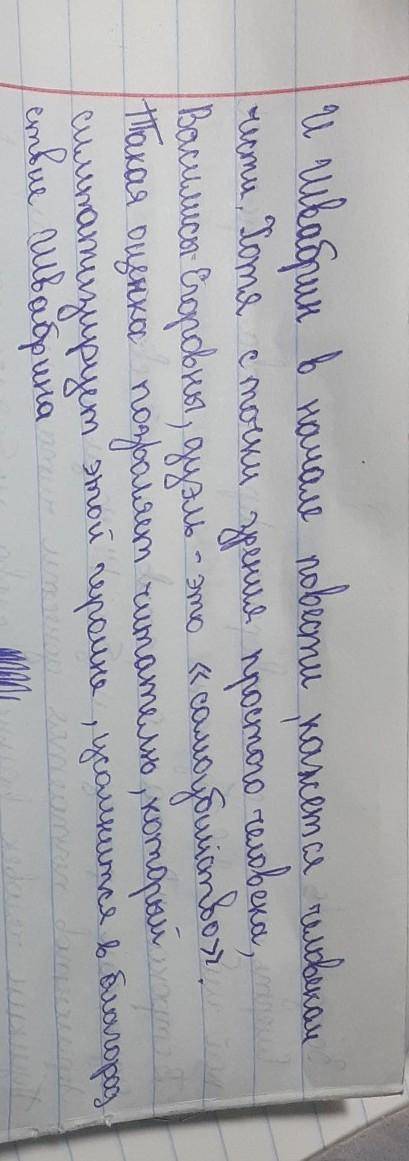 И Швабрин в начале повести кажется человекам
чести, Хотя с точки зрения простого человека,
Василисы Егоровны, дуэль - это «самоубийство».
Такая оценка позволяет читателю, который
симпатизирует этой героине, усомнится в благород
ствие Швабрина